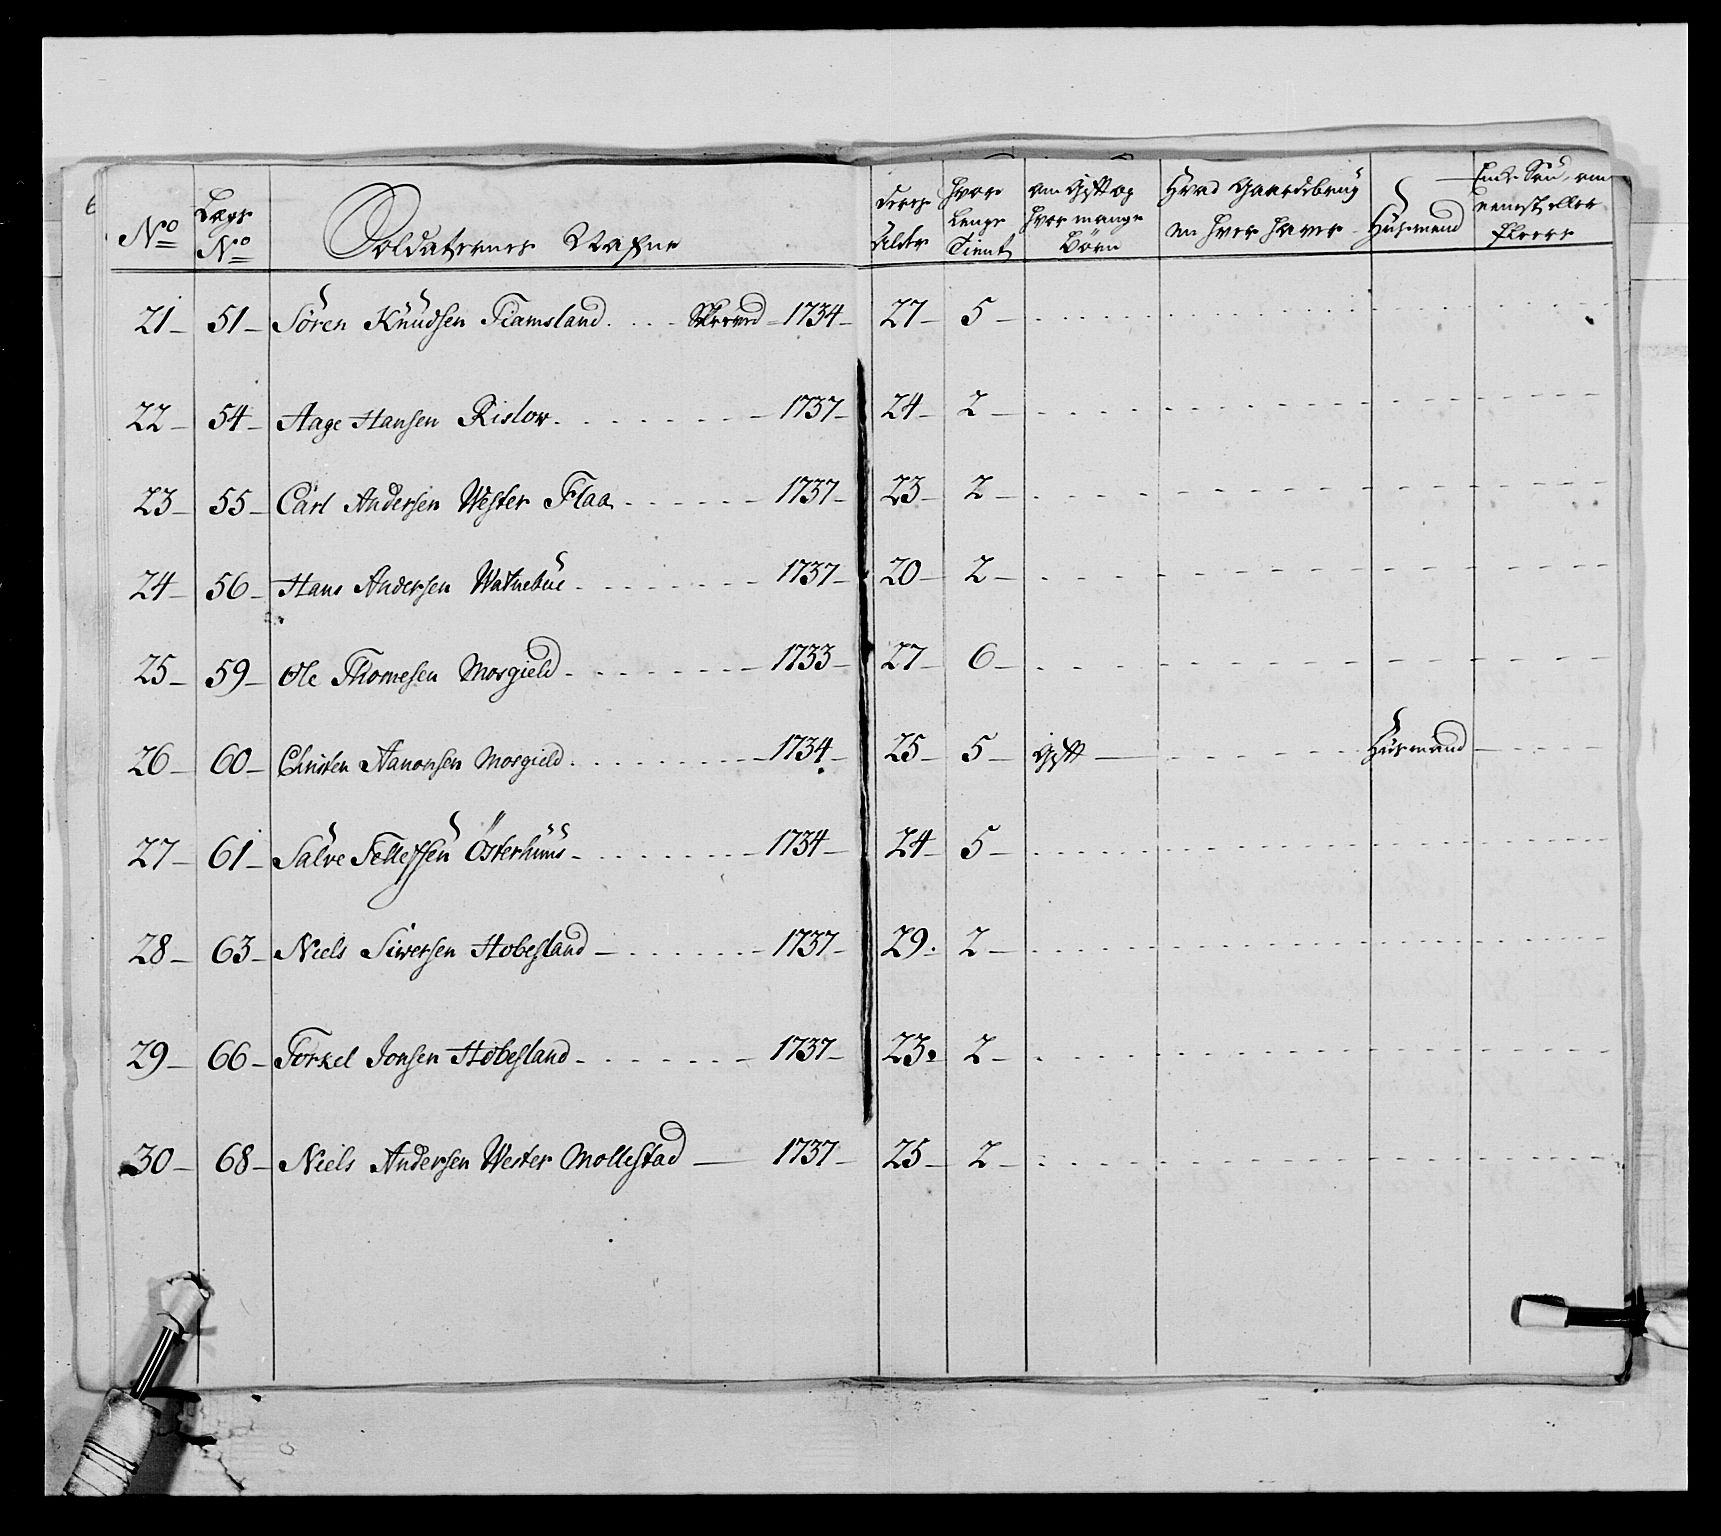 No Lægs No Soldaternes Nafne deres Alder hvor Lenge Tient om Gift og hvor mange Börn Hvad Gaardsbrug en hver haver Huusmand Enke Sön, om eeneste eller fleere
21 – 51 – Sören Knudsen Tiamsland . . . . 1734 – 27 – 5 –
22 – 54 – Aage Hansen Rislov . . . . 1737 – 24 – 2 –
23 – 55 – Carl Andersen Wester Flaa . . . . 1737 – 23 – 2 –
24 – 56 – Hans Andersen Watnebue . . . . 1737 – 20 – 2 –
25 – 59 – Ole Thomesen Mosgield . . . . 1733 – 27 – 6 –
26 – 60 – Christen Aanonsen Mosgield . . . . 1734 – 25 – 5 – Gift – Huusmand –
27 – 61 – Salve Tellefsen Österhuus . . . . 1734 – 24 – 5 –
28 – 63 – Niels Siversen Hobesland – . . . . 1737 – 29 . 2 –
29 – 66 – Torkel Jonsen Hobesland . . . . 1737 – 23 . 2 –
30 – 68 – Niels Andersen Wester Mollestad — 1737 – 25 – 2 –